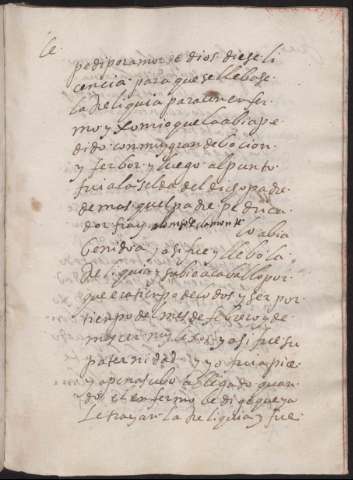 le
pedi por amor de dios diese li
cencia para que se llebase
la Reliquia para un enfer
mo y como que la abia pe
dido con mui gran deboçion
y ferbor y luego al punto
fui a la selda del dicho padre
demas que el padre predica
dor fray de la monte lo abia
benido a y asi fue y llebo la
Reliquia y subio a caballo por
que tiempo de lodos y ser por
tiempo del mes de febrero y de
mas y asi fue su
paternidad y yo fui a pie
y apenas ubo allegado quan
do el enfermo be dige que ya
le trayan la Reliquia y fue